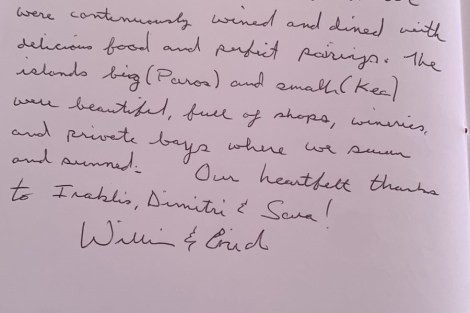 were continuously wined and dined with
delicious food and perfect pairings. The
islands big (Paros) and small (Kea)
were beautiful, full of shops, wineries,
and private bays where we swam
and sunned. Our heartfelt thanks
to Iraklis, Dimitri & Sava!
&